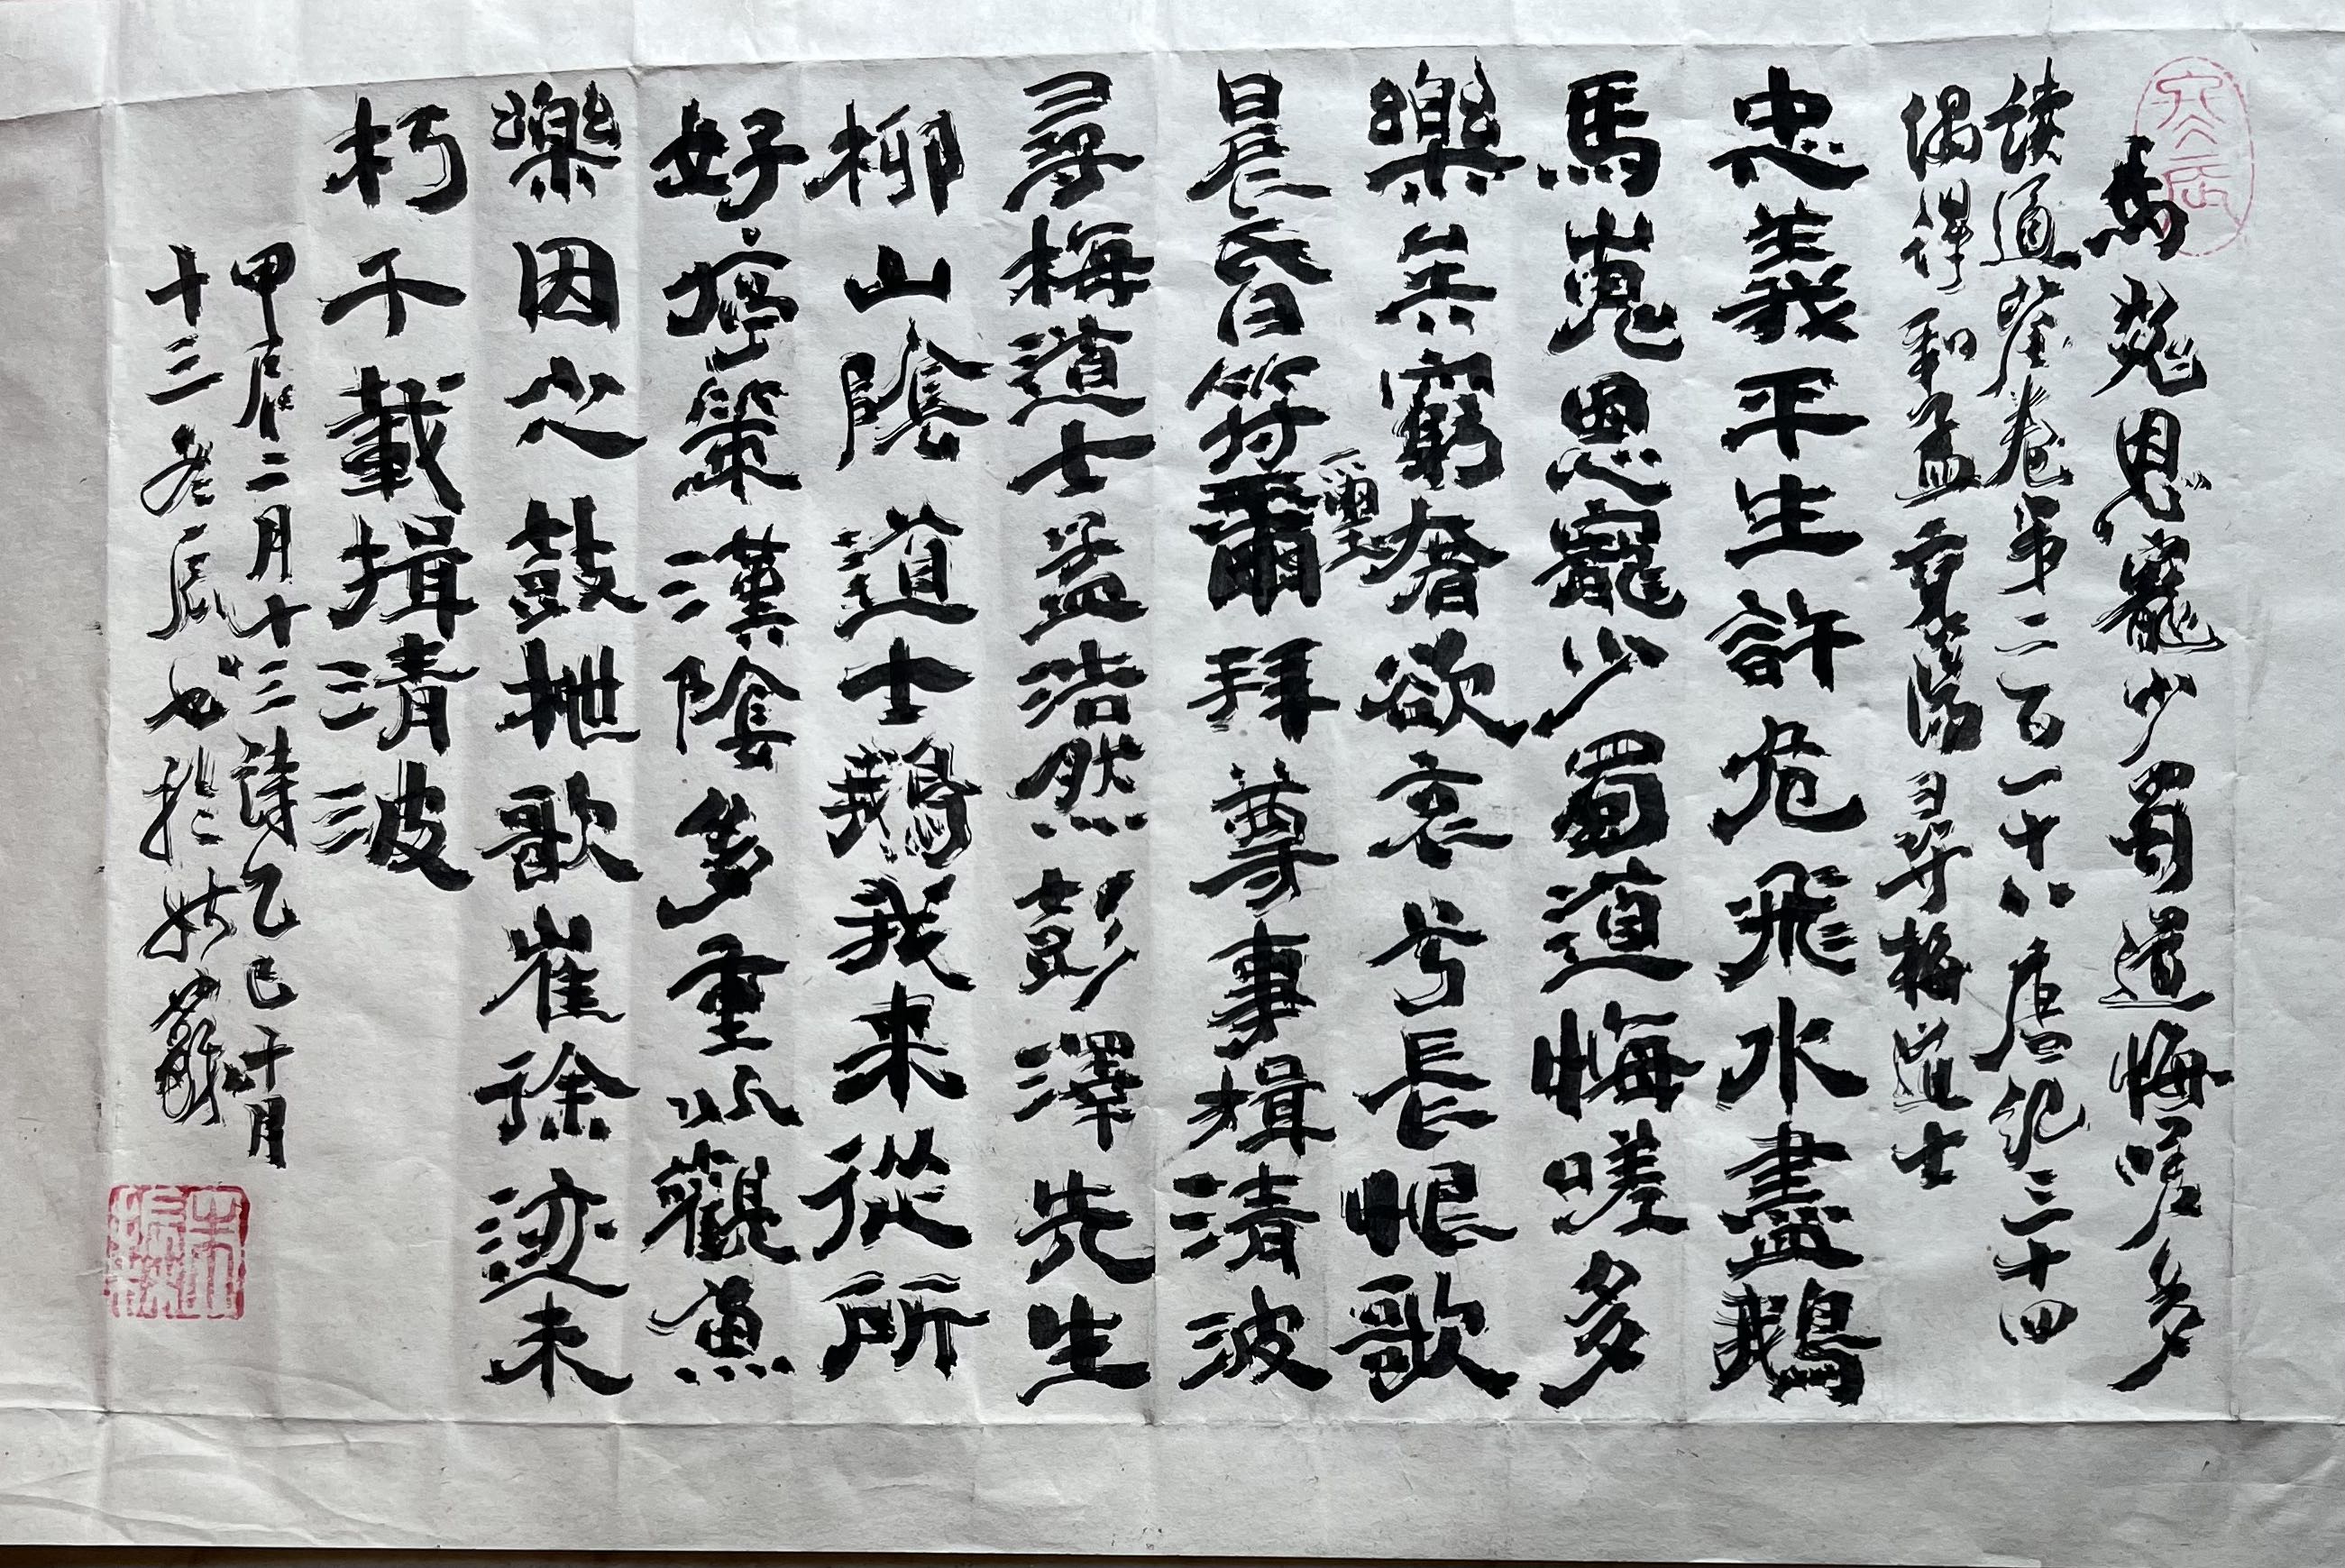 馬嵬思寵少蜀道悔嗟多
读通鉴卷第二百一十八唐纪三十四
偶得和孟襄陽尋梅道士
忠義平生許危飛水盡鵝
馬嵬思寵少蜀道悔嗟多
樂兵窮奢欲哀兮長恨歌
晨昏符爾拜尊事揖清波
璽
尋梅道士孟浩然彭澤先生
柳山陰道士鵝我来從所
好停策漢陰多重以觀魚
樂因之鼓枻歌崔徐迹未
朽千載揖清波
甲辰二月十三詩乙巳十月
十三 辰 於姑蘇